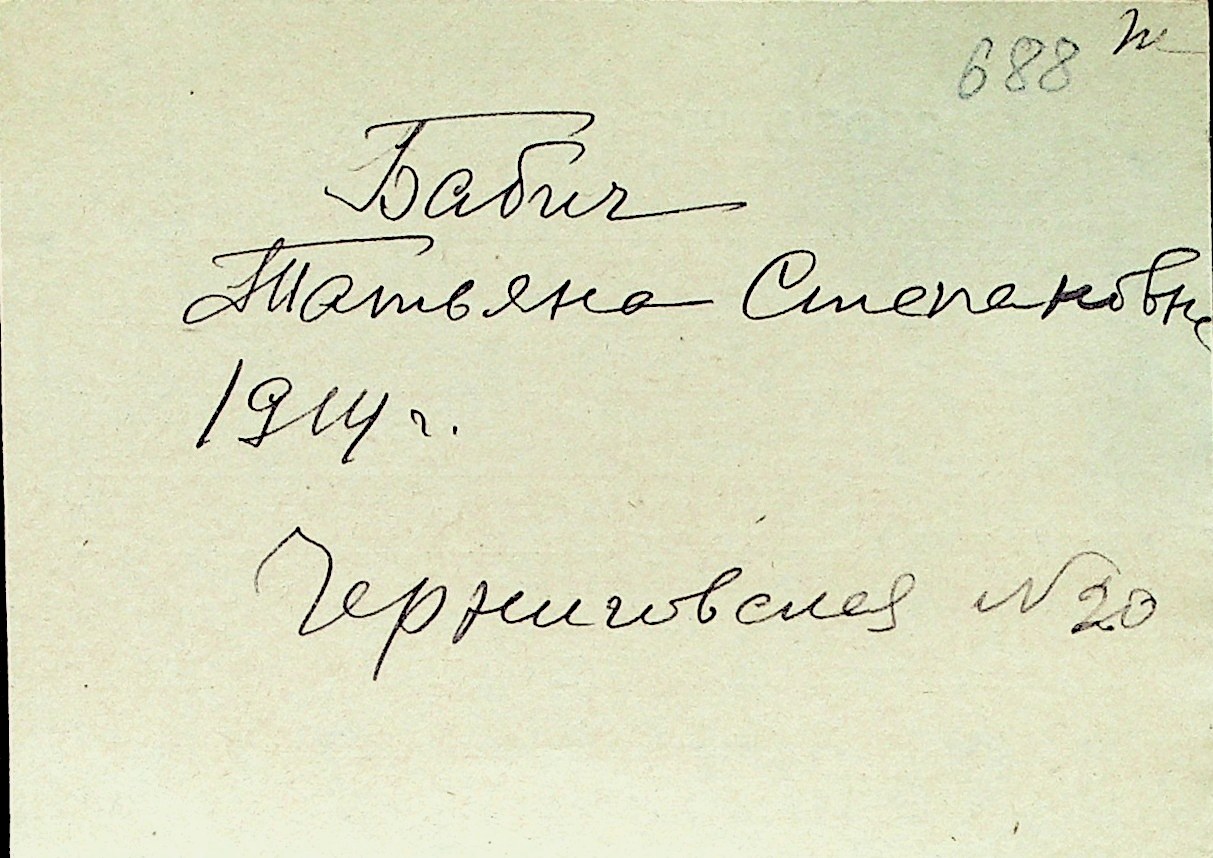 688
Бабич
Татьяна Степановна
1914 г.
Черниговская N 20